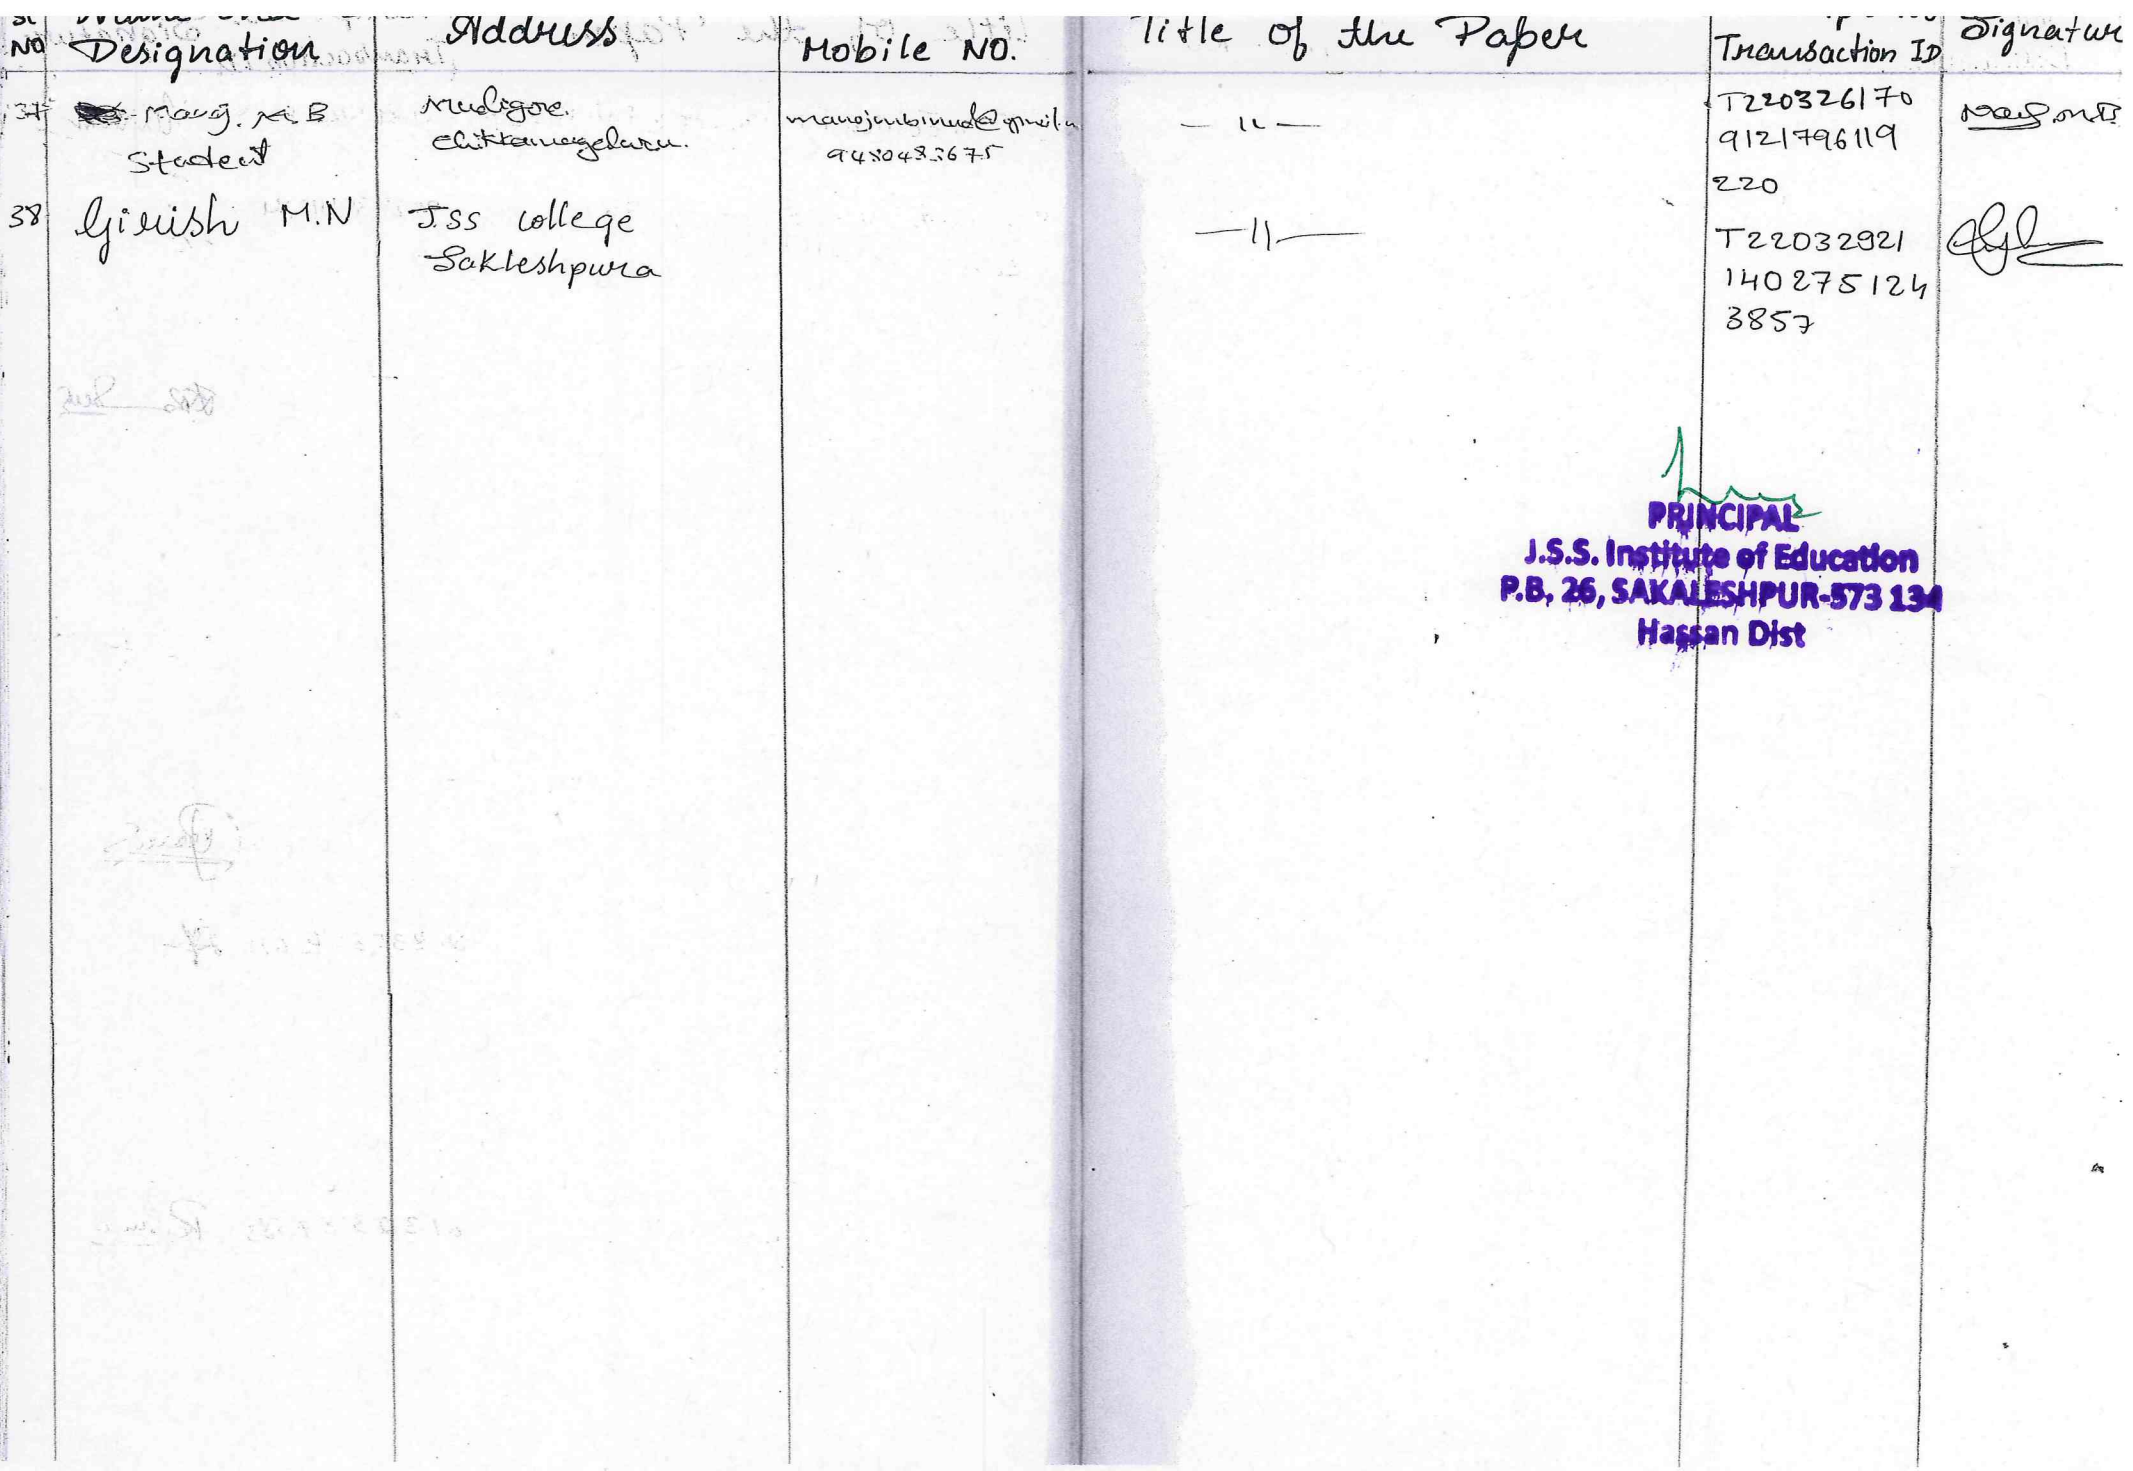 Sl
NO
Designation
Address
Mobile NO.
Title of the Paper
Transaction ID
Signatur
37
Manoj. M. B
Student
Mudigere.
Chikkamagaluru.
9480483675
— 11 —
T220326170
9121796119
220
38
Girish M.N
JSS college
Sakleshpura
— 11 —
T22032921
140275124
3857
PRINCIPAL
J.S.S. Institute of Education
P.B, 26, SAKALESHPUR-573 134
Hassan Dist